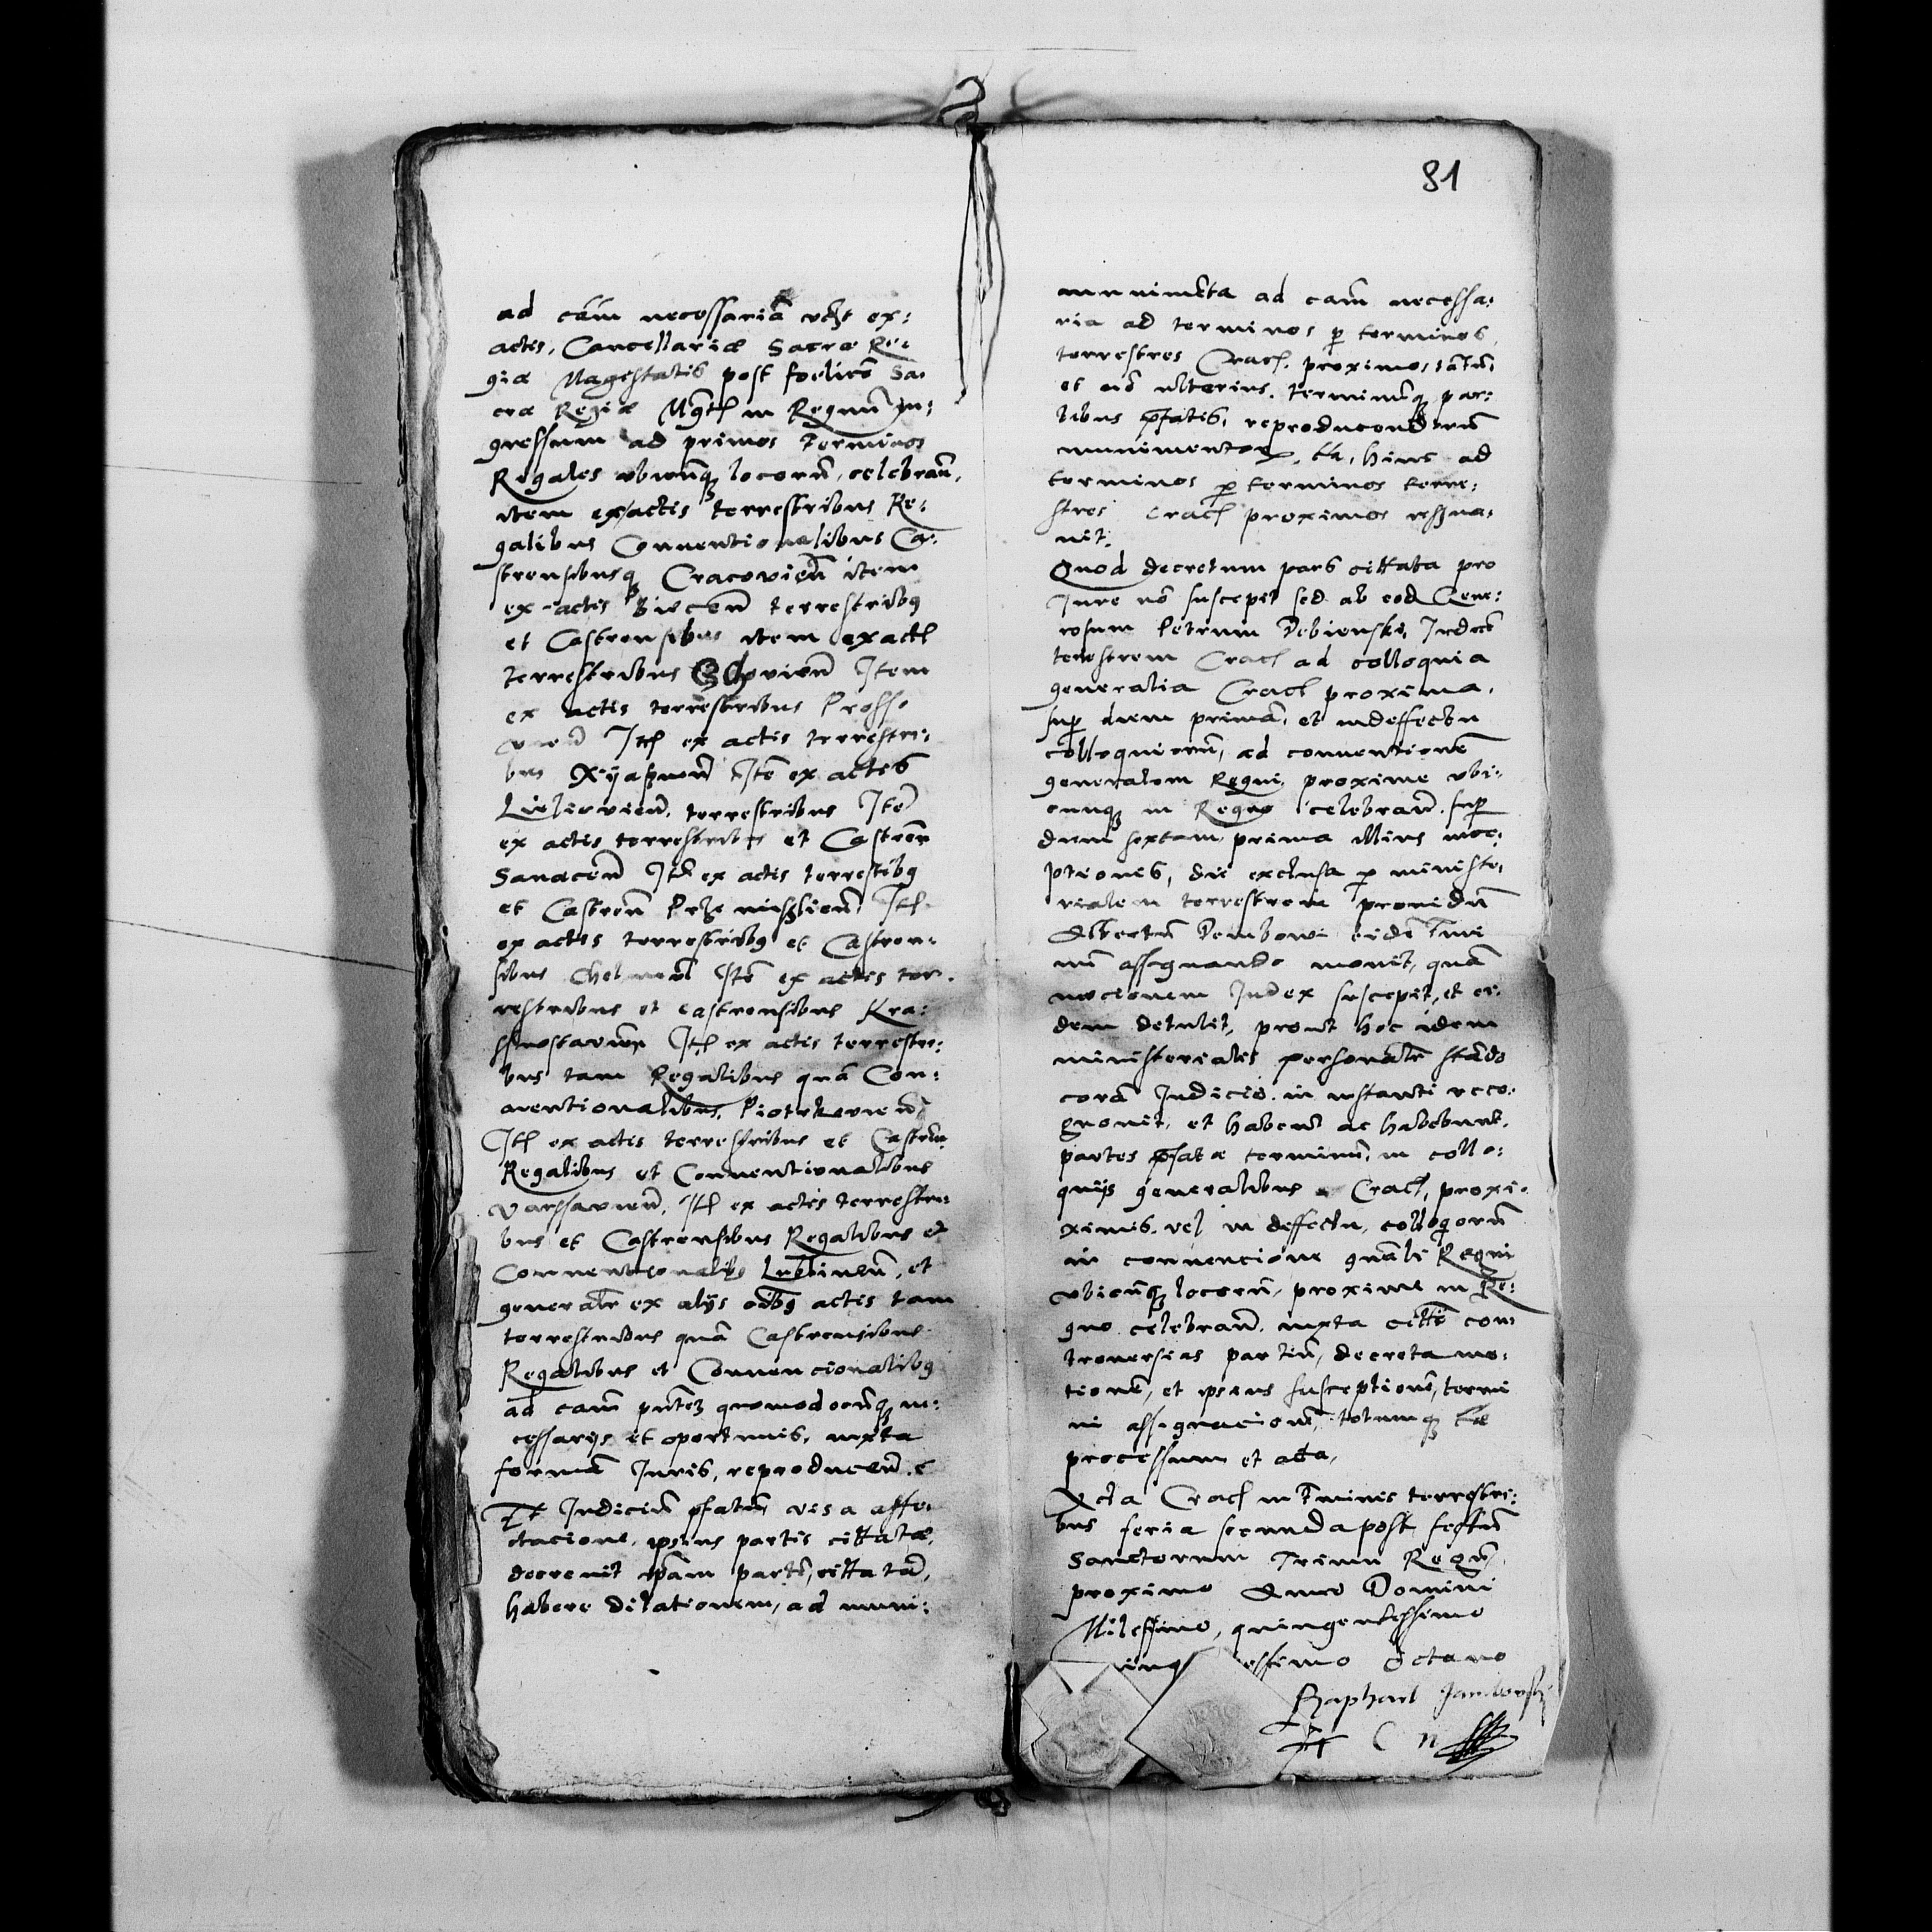 ad cām necessariā vdzt ex:
actis, Cancellariæ Sacræ Re:
giæ Magestatis post foelicē Sa:
cræ Regiæ Mgtis in Regnū in:
gressum ad primos terminos
Regales vbicunq locorū, celebrañ,
item ex actis terrestribus Re:
galibus Conuentionalibus Ca:
strensibusq Cracovieñ item
ex actis Bieceñ terrestribus
et Castrensibus item ex actis
terrestribus Item
ex actis terrestribus Prosso
vieñ Itē ex actis terrestri:
bus Xyaszneñ Itē ex actis
Lelovieñ, terrestribus Itē
ex actis terrestribus et Castreñ
Sanoceñ Itē ex actis terrestribus
et Castreñ Przemisslieñ Itē
ex actis terrestribus et Castren:
sibus Chelmeñ Itē ex actis ter:
restribus et castrensibus Kra:
ssnostavieñ Itē ex actis terrestri:
bus tam Regalibus quā Con:
uentionalibus, Piotrkovieñ
Itē ex actis terrestribus et Castreñ
Regalibus et Conuentionalibus
Varssavieñ, Itē ex actis terrestri:
bus et Castrensibus Regalibus et
Conuentionalibus Lublineñ, et
generalr ex alijs oībus actis tam
terrestribus quā Castrensibus
Regalibus et Conuencionalibus
ad cam pntē quomodocunq ne:
cessarijs et oportunis, iuxta
formā Iuris, reproduceñ.
Et Iudiciū pfatū visa affe:
ctacione, ipsius partis cittatæ,
decreuit ipam partē, cittatā,
habere dilationem, ad muni:
81
munimēta ad cam necessa:
ria ad terminos p terminos
terrestres Cracē. proximos tātū
et nō vlterius. terminūq par:
tibus pfatis, reproducendorū
munimentor, hinc ad
terminos p terminos terre:
stres Cracē proximos assigna:
uit.
Quod decretum pars cittata pro
Iure nō suscepit sed ab eod Gene:
rosum Petrum Debienski, Iudicē
terrestrem Cracē ad colloquia
generalia Cracē proxima,
sup diem primā, et in deffectu
colloquiorū, ad conuentionē
generalem Regni, proxime vbi:
cunq in Regno celebrañ. sup
diem sextam prima illius ince:
ptionis, die exclusa p ministe:
rialem terrestrem prouidū
Albertū Dembowi eidē Tmi
nū assignando mouit, quā
mocionem Iudex suscepit, et ei:
dem detulit, prout hoc idem
ministerialis personalr stādo
corā Iudicio in instanti reco:
gnouit, et habent ac habebunt,
partes pfatæ terminū, in collo:
quijs generalibus Cracē, proxi:
ximis. vel in deffectu, colloqiorū
in conuencione gnāli Regni
vbicunq locorū, proxime in Re:
gno celebrañ. iuxta cittē con
trouersias partiū, decreta mo:
tionē, et ipsius susceptionē, termi
ni assignacionē, totumq
processum et acta,
Acta Cracē in Tminis terrestri:
bus feria secunda post festū
Sanctorum Trium Regū
proximo Anno Domini
Milesimo, quingentessimo
octauo
Raphael